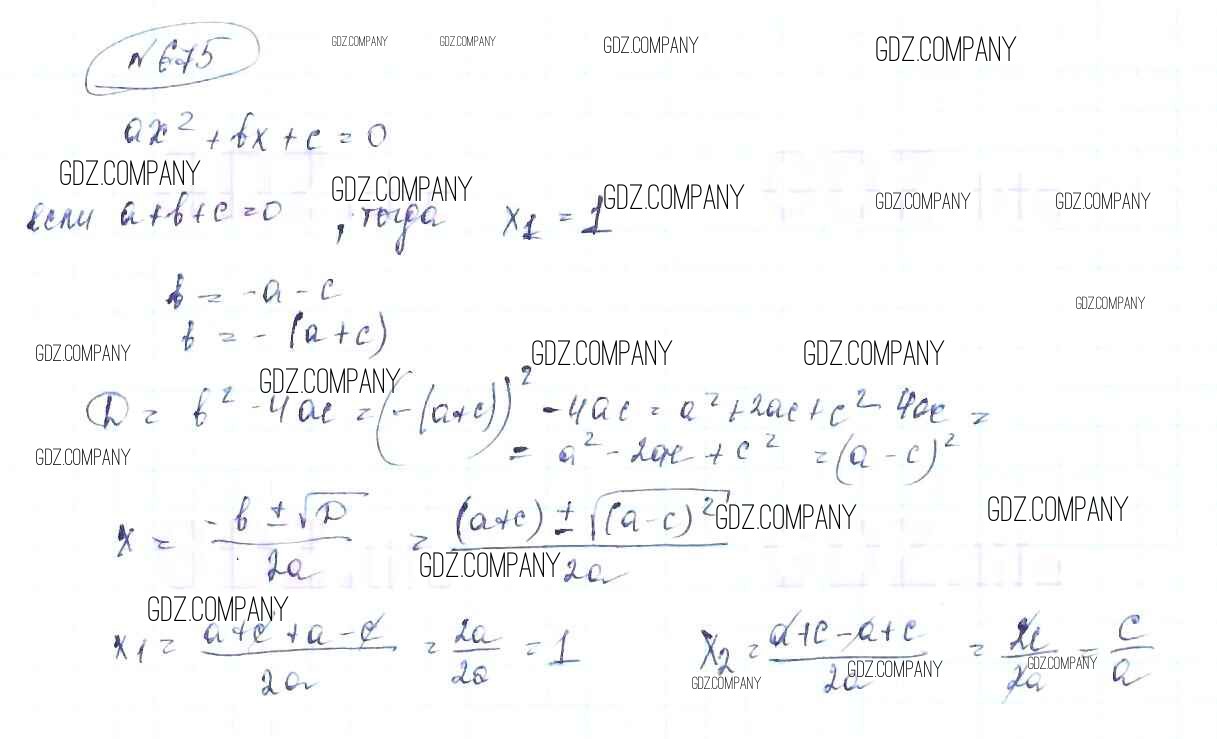 №675 GDZ.COMPANY GDZ.COMPANY GDZ.COMPANY GDZ.COMPANY
ax² + bx + c = 0
GDZ.COMPANY GDZ.COMPANY GDZ.COMPANY GDZ.COMPANY GDZ.COMPANY
если a+b+c=0, тогда x₁ = 1
b = -a - c
GDZ.COMPANY
b = - (a+c)
GDZ.COMPANY GDZ.COMPANY GDZ.COMPANY
GDZ.COMPANY
D = b² - 4ac = (-(a+c))² - 4ac = a² + 2ac + c² - 4ac =
= a² - 2ac + c² = (a - c)²
GDZ.COMPANY
x = (-b ± √D)/(2a) = ((a+c) ± √((a-c)²))/(2a)
GDZ.COMPANY GDZ.COMPANY
GDZ.COMPANY
GDZ.COMPANY
x₁ = (a+c+a-c)/(2a) = 2a/2a = 1 x₂ = (a+c-a+c)/(2a) = 2c/2a = c/a
GDZ.COMPANY GDZ.COMPANY GDZ.COMPANY